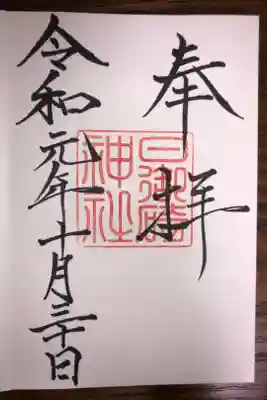 奉拝
日御碕
神社
令和元年十月三十日